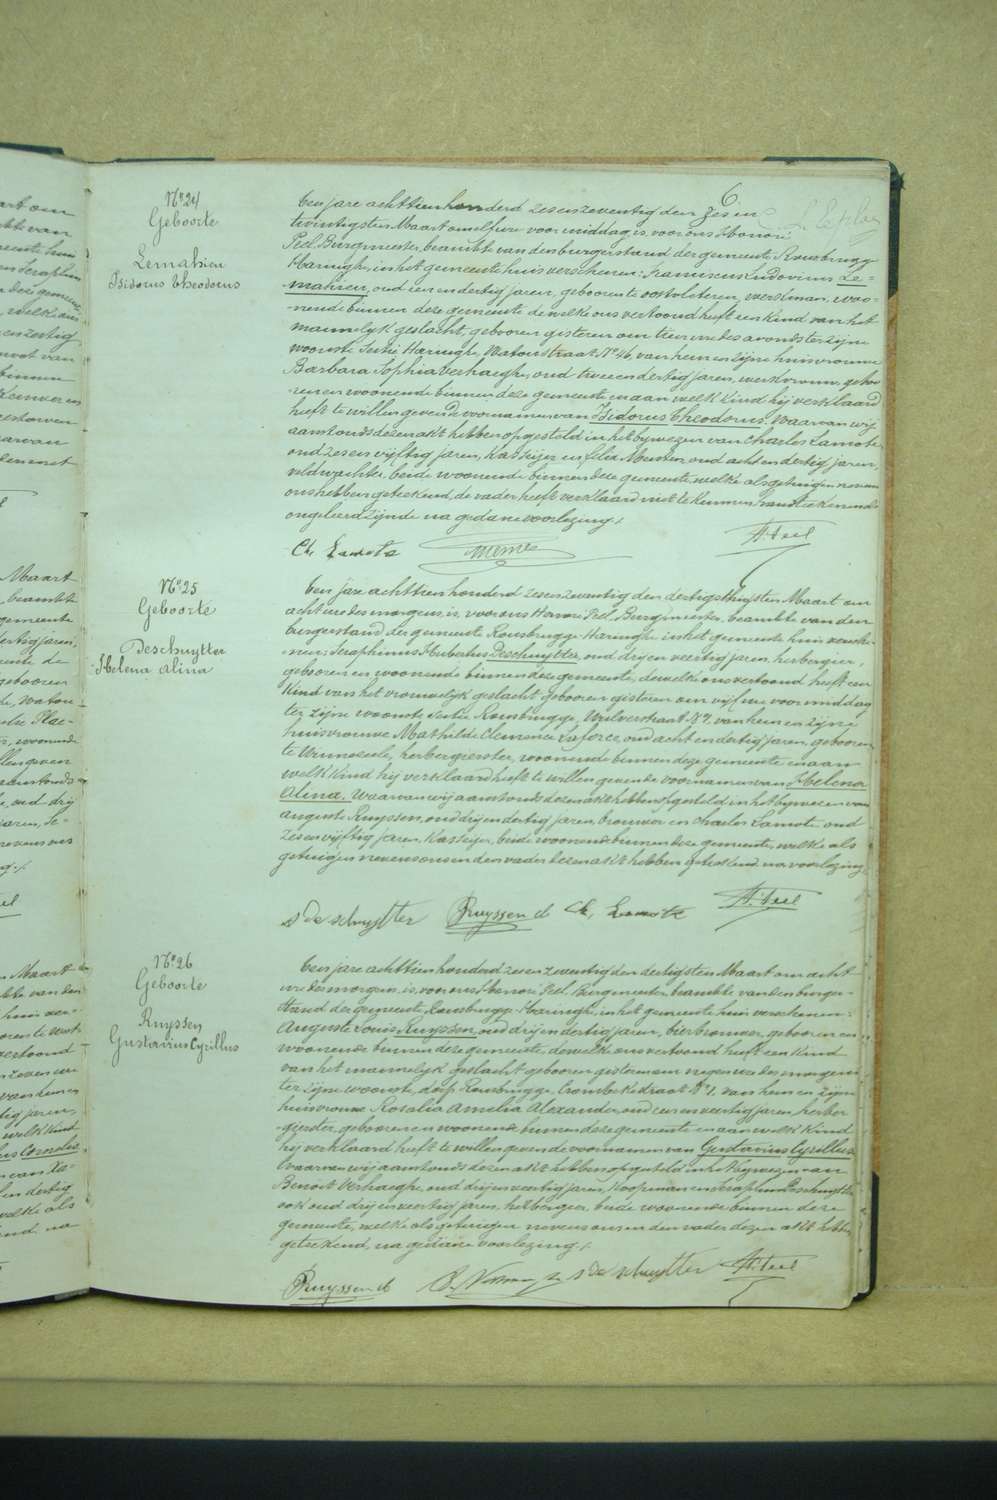 6.
Nº 24
Geboorte
Lemahieu
Isidorus Theodorus
Een jare achttien honderd zesenzeventig den zes en
twintigsten Maart om elf ure voor middag is, voor ons Honoré
Peel Burgmeester, beambte van den burgerstand der gemeente Rousbrugge
Haringhe, in het gemeente huis verschenen: Franciscus Ludovicus Le-
mahieu, oud een en dertig jaren, geboren te oostvleteren, werkman, woo-
nende binnen deze gemeente dewelke ons vertoond heeft een kind van het
mannelijk geslacht, geboren gisteren om tien ure des avonds ter zijne
woonste sectie Haringhe, Watoustraat Nº 46, van hem en zijne huisvrouwe
Barbara Sophia Verhaeghe, oud twee en dertig jaren, werkvrouw, gebo-
ren en woonende binnen deze gemeente en aan welk kind hij verklaard
heeft te willen geven de voornamen van Isidorus Theodorus. Waarvan wij
aanstonds dezen akt hebben opgesteld in het bijwezen van Charles Lamote
oud zes en vijftig jaren, Kasseijer en Felix Mersseman, oud acht en dertig jaren,
veldwachter, beide woonende binnen deze gemeente, welke als getuigen nevens
ons hebben geteekend, de vader heeft verklaard niet te kunnen handteekenende
ongeleerd zijnde na gedane voorlezing ./.
Ch. Lamote H. Peel
Nº 25
Geboorte
Deschuytter
Helena Alina
Een jare achttien honderd zesenzeventig den dertigsten Maart om
acht ure des morgens, is, voor ons Honoré Peel Burgmeester, beambte van den
burgerstand der gemeente Rousbrugge Haringhe in het gemeente huis versche-
nen: Seraphinus Hubertus Deschuytter, oud drij en veertig jaren, herbergier,
geboren en woonende binnen deze gemeente, dewelke ons vertoond heeft een
kind van het vrouwelijk geslacht geboren gisteren om vijf ure voormiddag
ter zijne woonste sectie Rousbrugge, Weulverstraat Nº 7 van hem en zijne
huisvrouwe Mathilde Clemence Laforce, oud acht en dertig jaren, geboren
te Winnezeele, herbergierster, woonende binnen deze gemeente en aan
welk kind hij verklaard heeft te willen geven de voornamen van Helena
Alina. Waarvan wij aanstonds dezen akt hebben opgesteld in het bijwezen van
Auguste Ruyssen, oud drij en dertig jaren, brouwer en Charles Lamote oud
zes en vijftig jaren, Kasseijer, beide woonende binnen deze gemeente, welke als
getuigen nevens ons en den vader dezen akt hebben geteekend na voorlezing
S De schuytter Ruyssen A Ch. Lamote H. Peel
Nº 26
Geboorte
Ruyssen
Gustavius Cyrillus
Een jare achttien honderd zesenzeventig den dertigsten Maart om acht
ure des morgens, is, voor ons Honoré Peel Burgmeester, beambte van den burger-
stand der gemeente Rousbrugge-Haringhe, in het gemeente huis verschenen:
Auguste Louis Ruyssen, oud drij en dertig jaren, bierbrouwer, geboren en
woonende binnen deze gemeente, dewelke ons vertoond heeft een kind
van het mannelijk geslacht geboren gisteren om negen ure des morgens
ter zijne woonste, dorp Rousbrugge, Crombekestraat Nº 1. van hem en zijne
huisvrouwe Rosalia Amelia Alexander, oud een en veertig jaren, herber-
gierster, geboren en woonende binnen deze gemeente en aan welk kind
hij verklaard heeft te willen geven de voornamen van Gustavius Cyrillus
Waarvan wij aanstonds dezen akt hebben opgesteld in het bijwezen van
Benoit Verhaeghe, oud drij en veertig jaren, koopman en Seraphin Deschuytter
ook oud drij en veertig jaren, herbergier, beide woonende binnen deze
gemeente, welke als getuigen nevens ons en den vader dezen akt hebben
geteekend, na gedane voorlezing ./.
Ruyssen A S De schuytter H. Peel